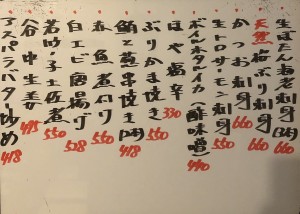 生ぼたん海老刺身(3本) 660
天然桜ぶり刺身 660
かつお刺身 660
生トロサーモン刺身 550
ボイルホタルイカ(酢味噌) 440
ほや塩辛 330
ぶりかま焼き 550
鮪と葱串焼き(1本) 418
赤魚煮付け 550
白エビ唐揚げ 528
若竹子土佐煮 550
谷中生姜 495
アスパラバター炒め 418